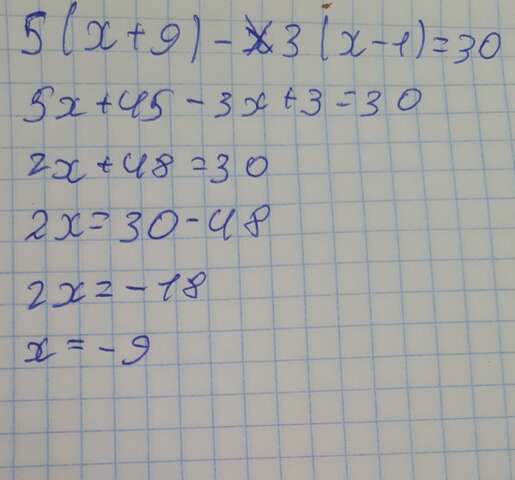 5(x+9)-3(x-1)=30
5x+45-3x+3=30
2x+48=30
2x=30-48
2x=-18
x=-9